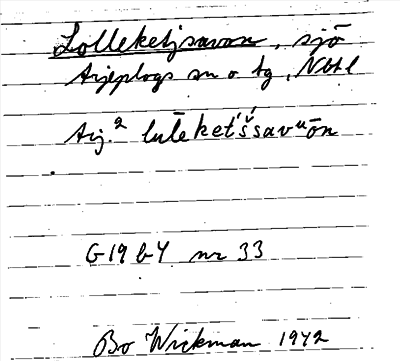 Lolleketjsavon, sjö
Arjeplogs sn o tg, Nbtl
Arj.² lulēket'śśavᵘōn
G 19 b Y nr 33
Bo Wickman 1942